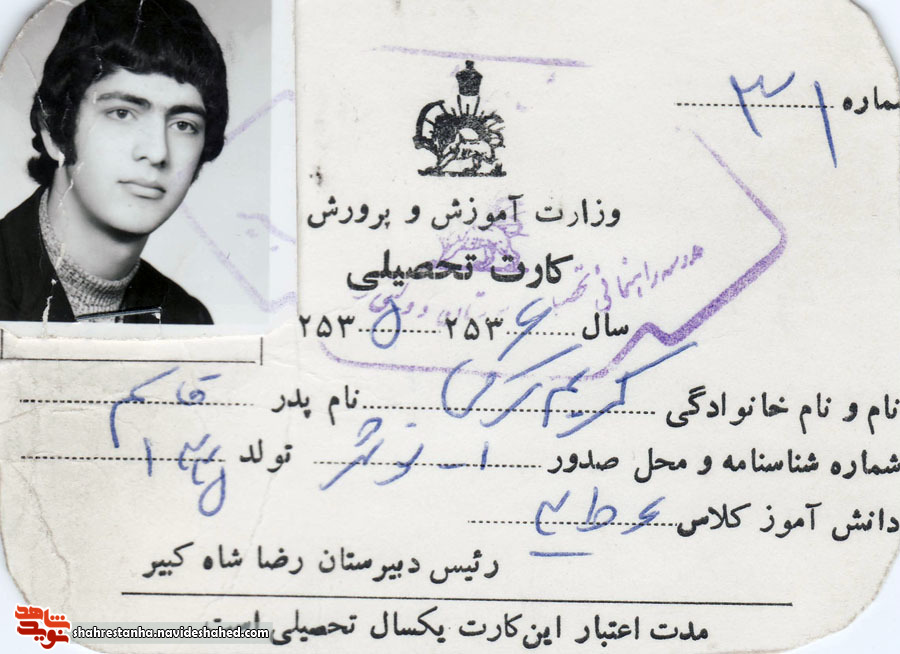 شماره ۳۱
وزارت آموزش و پرورش
کارت تحصیلی
مدرسه راهنمائی
سال ۲۵۳۶ ۲۵۳۵
نام و نام خانوادگی کریم نام پدر قاسم
شماره شناسنامه و محل صدور ۱ - نوشهر تولد ۱۳۳۵
دانش آموز کلاس
رئیس دبیرستان رضا شاه کبیر
مدت اعتبار این کارت یکسال تحصیلی است
شاهد
نوید
shahrestanha.navideshahed.com